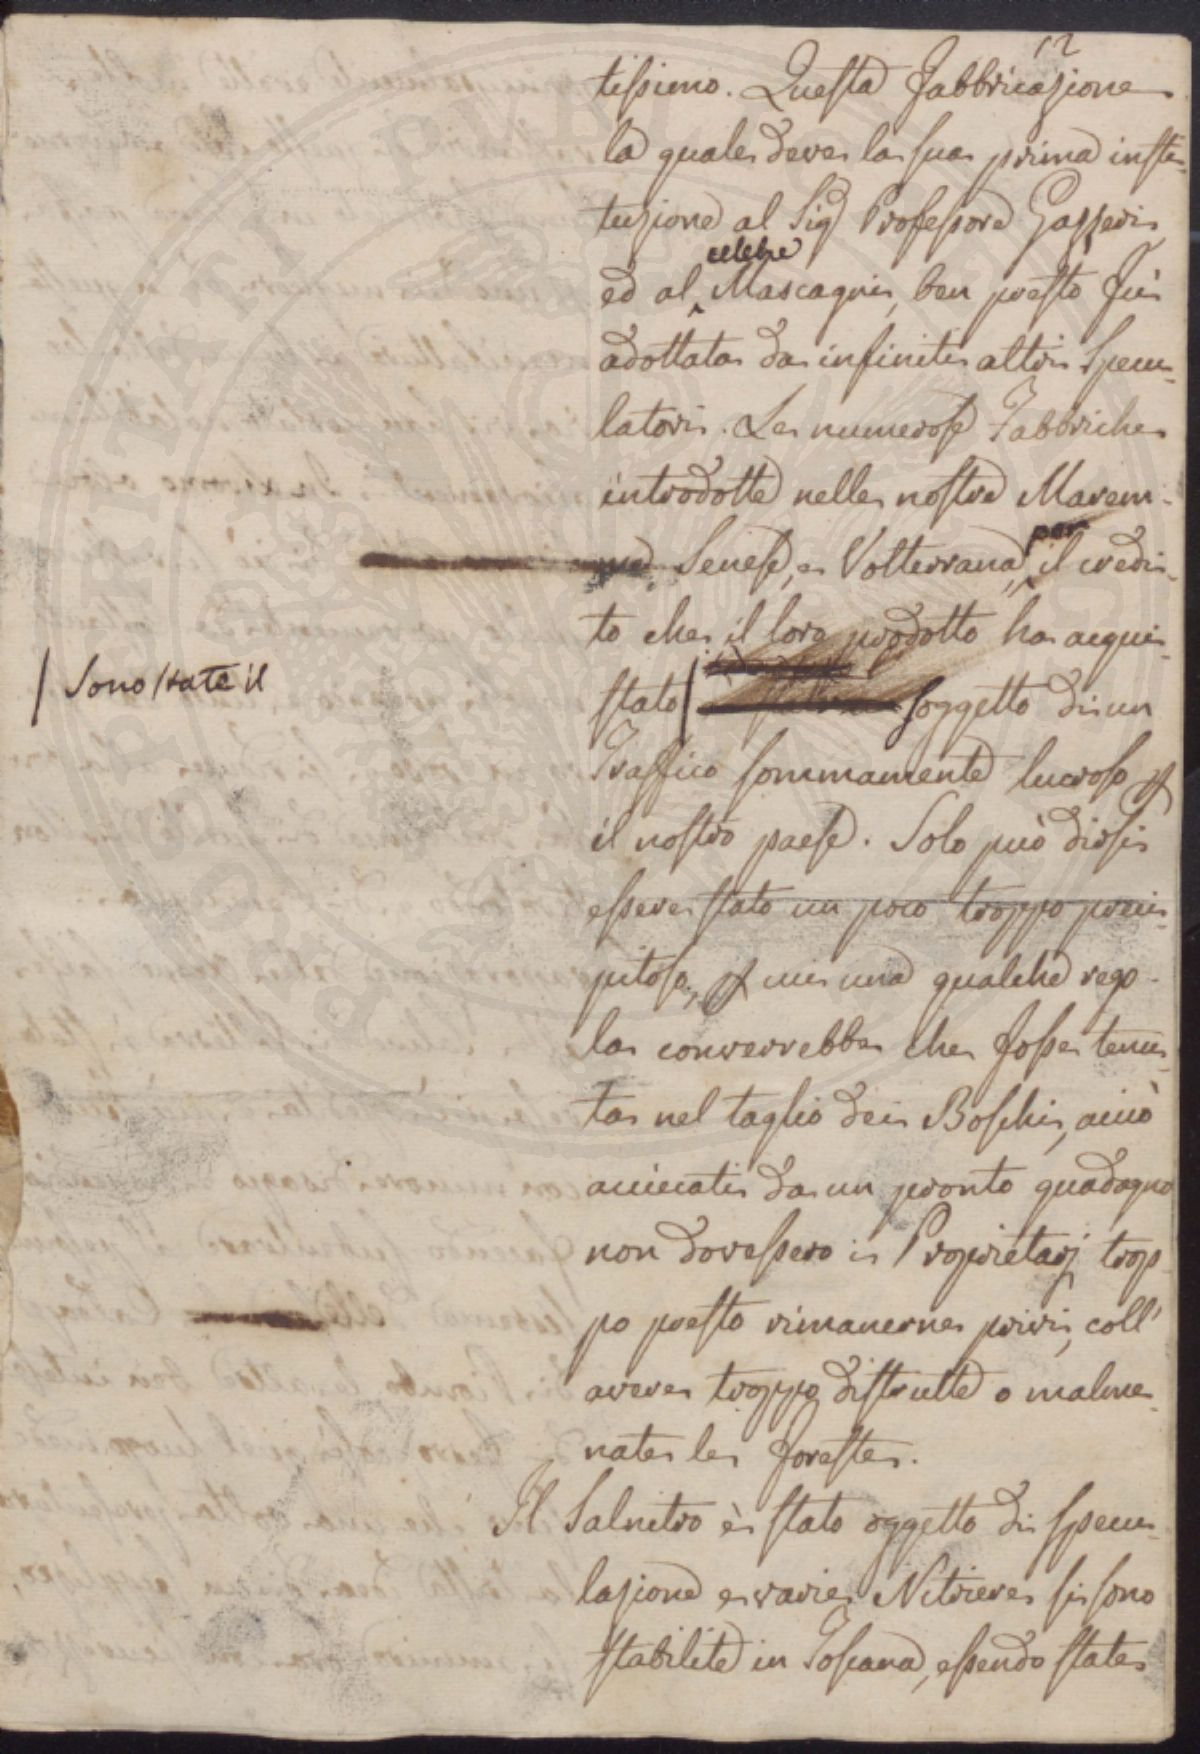 12
tissimo. Questa Fabbricazione
la quale deve la sua prima insti-
tuzione al Sig Professore Gazzeri
ed al celebre Mascagni, ben presto fù
adottata da infiniti altri Specu-
latori. Le numerose Fabbriche
introdotte nelle nostre Marem-
me Senese, e Volterrana, per il credi-
to che il loro prodotto ha acqui-
/ Sono state il
stato / soggetto di un
Traffico sommamente lucroso
il nostro paese. Solo può dirsi
essere stato un poco troppo preci-
pitoso, una qualche rego-
la converrebbe che fosse tenu-
ta nel taglio dei Boschi, acciò
acciecati da un pronto guadagno
non dovessero i Proprietarj trop-
po presto rimanerne privi, coll'
avere troppo distrutte o malme-
nate le foreste.
Il Salnitro è stato oggetto di specu-
lazione e varie Nitriere si sono
stabilite in Toscana, essendo state
PROSPERITATI PUBLICAE